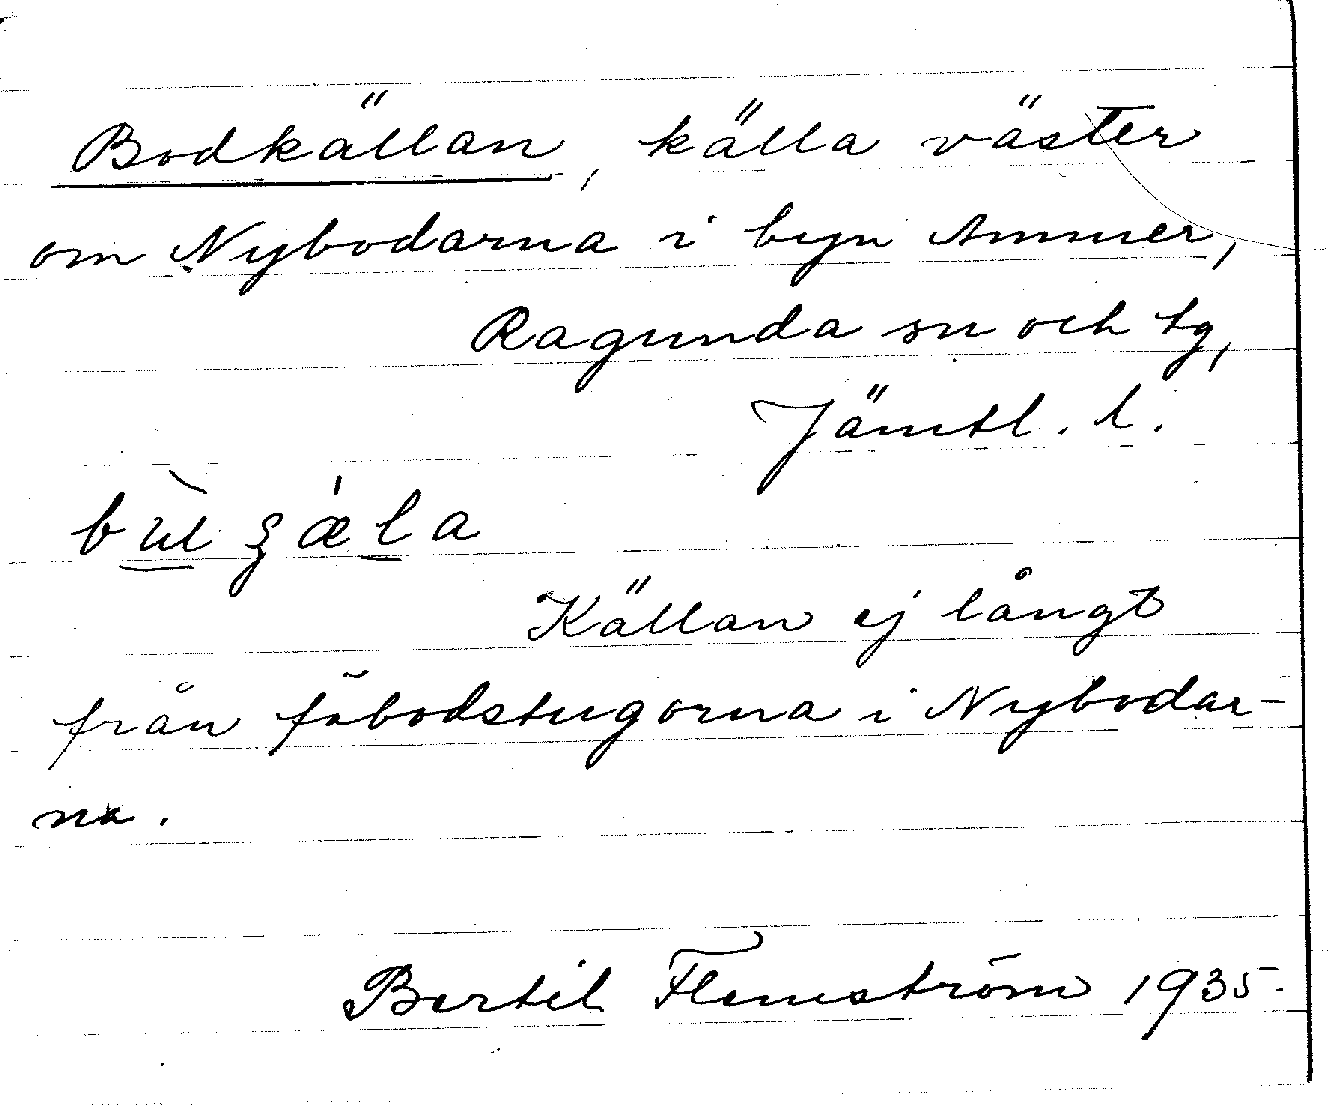 Bodkällan, källa väster
om Nybodarna i byn Ammer,
Ragunda sn och tg,
Jämtl. l.
Källan ej långt
från fäbodstugorna i Nybodar-
na.
Bertil Flemström 1935.